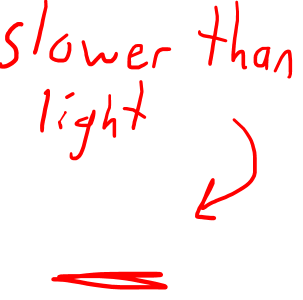 slower than
light